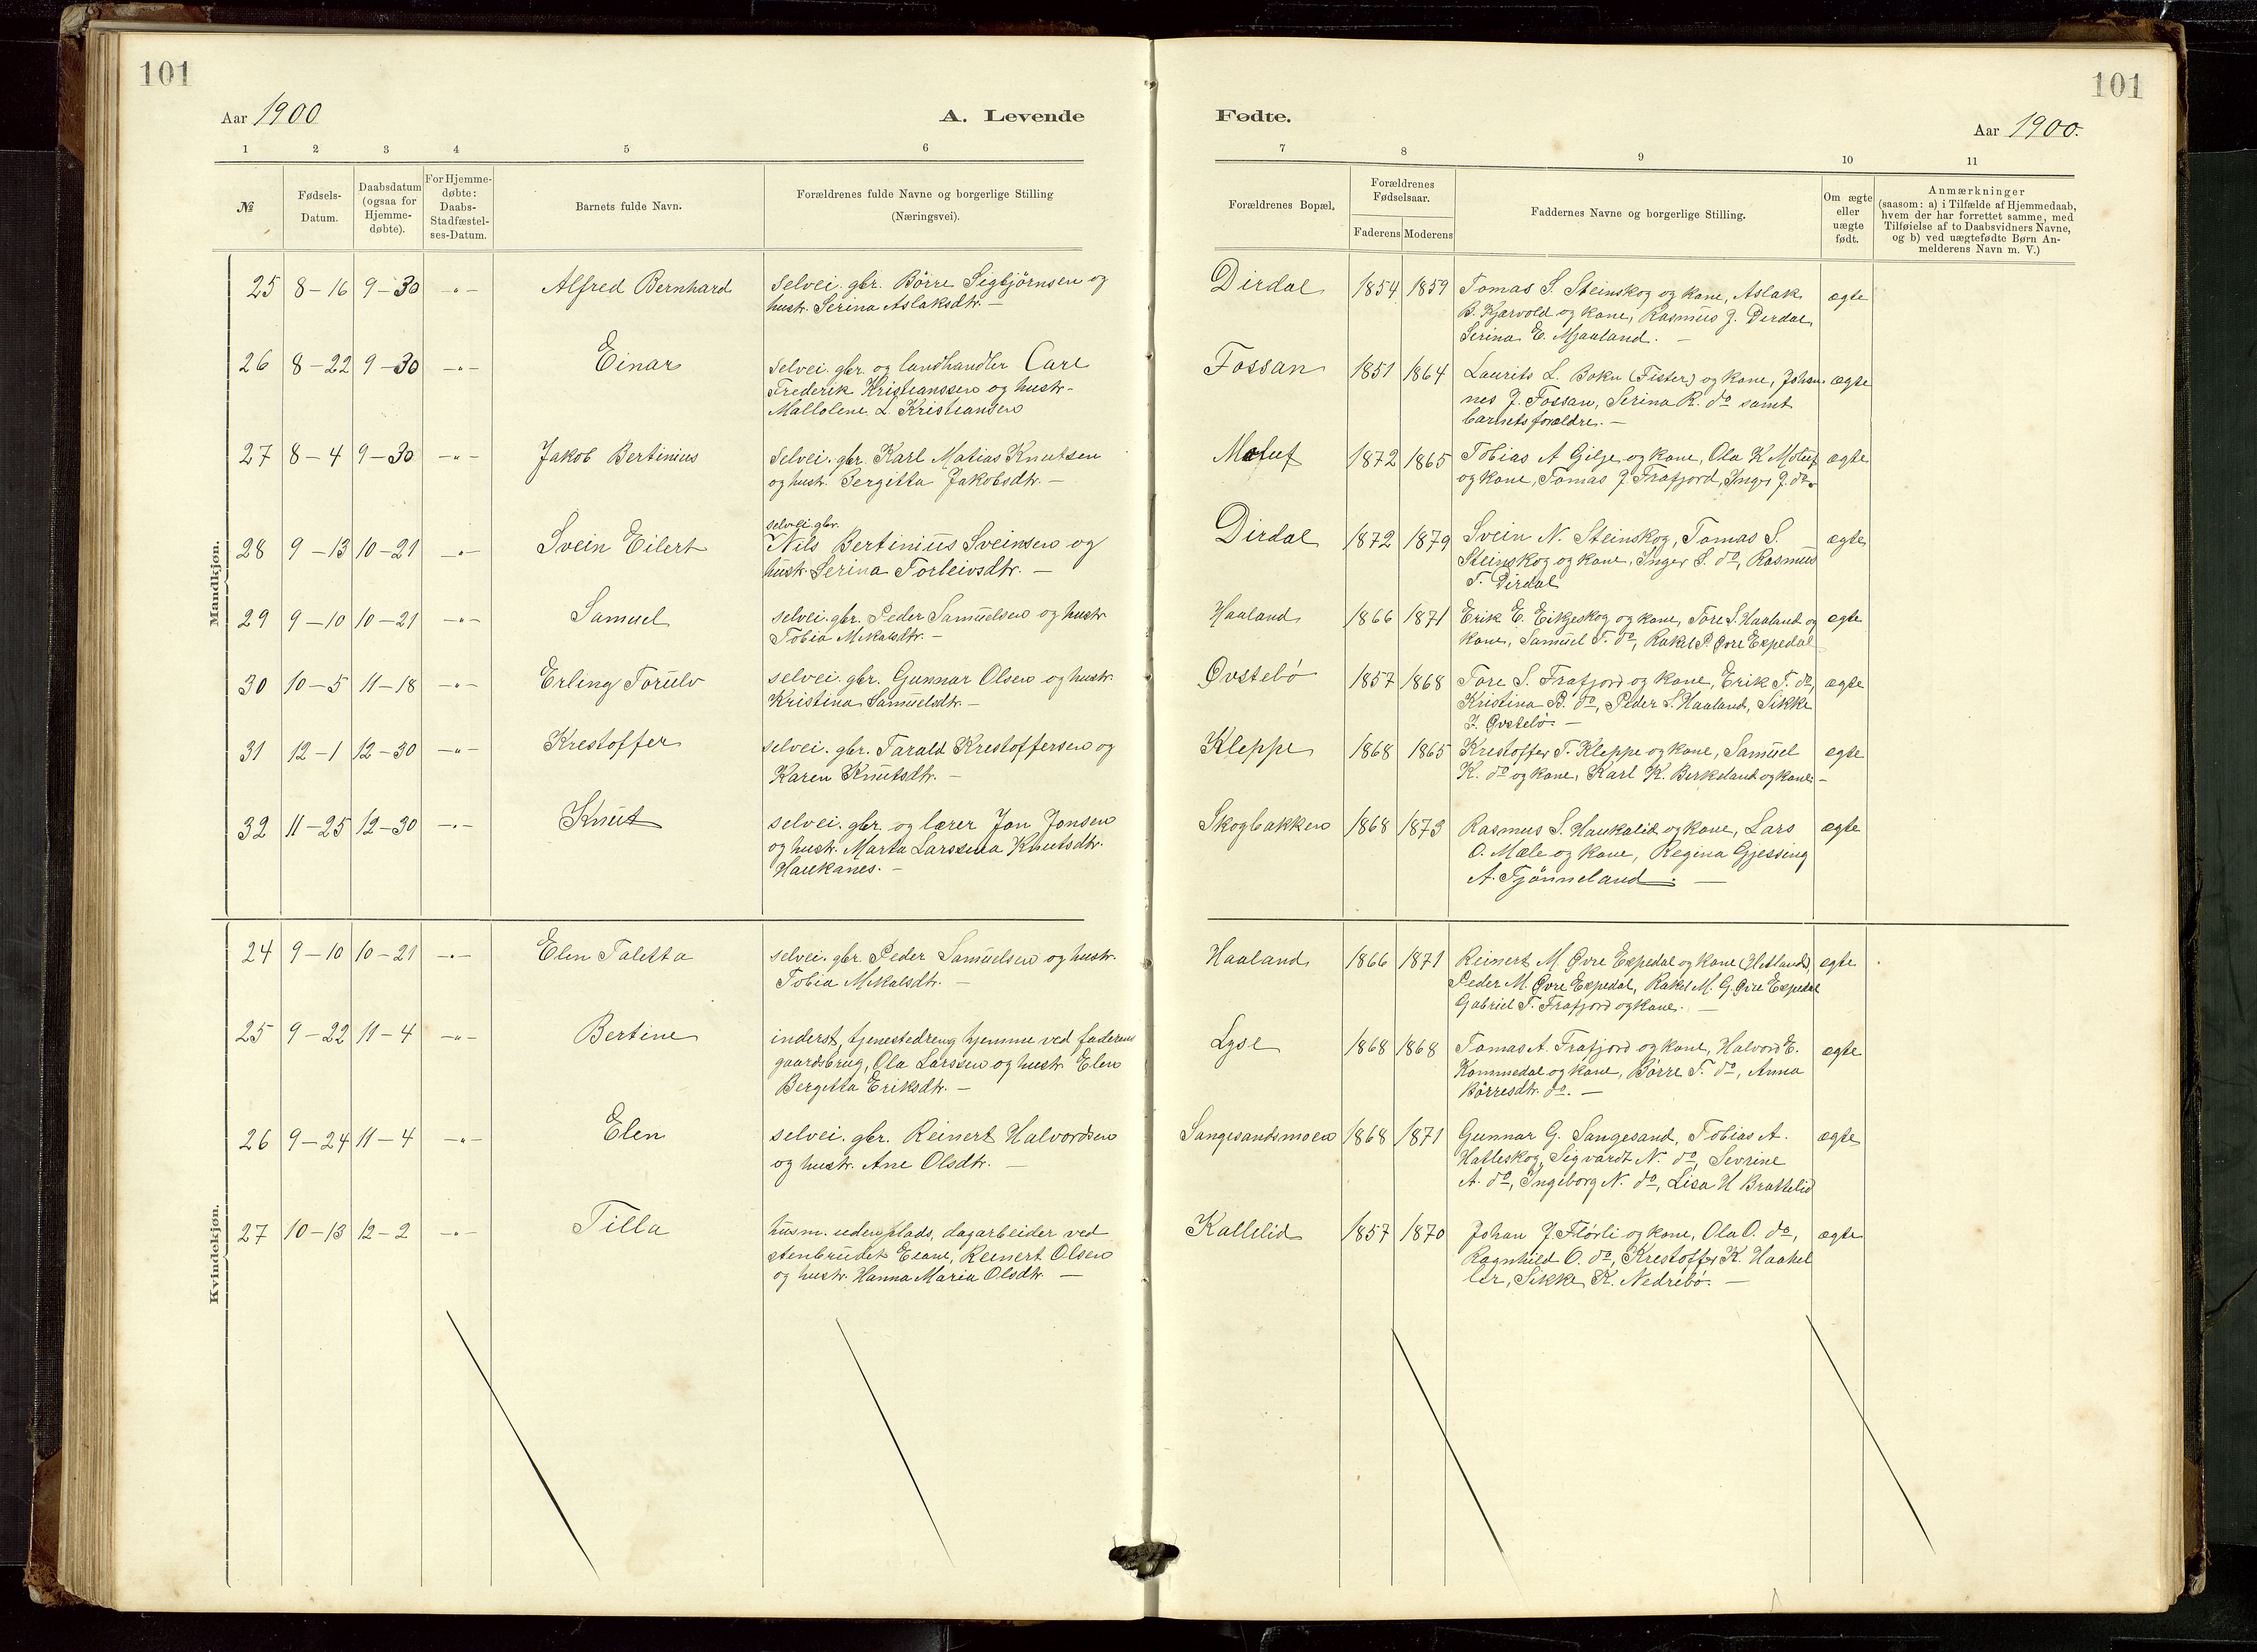 101
101
Aar 1900
A. Levende
Fødte.
Aar 1900.
1 2 3 4 5 6 7 8 9 10 11
№
Fødsels-
Datum.
Daabsdatum
(ogsaa for
Hjemme-
døbte).
For Hjemme-
døbte:
Daabs-
Stadfæstel-
ses-Datum.
Barnets fulde Navn.
Forældrenes fulde Navne og borgerlige Stilling
(Næringsvei).
Forældrenes Bopæl.
Forældrenes
Fødselsaar.
Faderens Moderens
Faddernes Navne og borgerlige Stilling.
Om ægte
eller
uægte
født.
Anmærkninger
(saasom: a) i Tilfælde af Hjemmedaab,
hvem der har forrettet samme, med
Tilføielse af to Daabsvidners Navne,
og b) ved uægtefødte Børn An-
melderens Navn m. V.)
Mandkjøn.
25 8-16 9-30 -"- Alfred Bernhard selvei. gbr. Börre Sigbjörnsen og
hustr. Serina Aslaksdtr. -
Dirdal 1854 1859 Tomas S. Steinskog og kone, Aslak ægte
B. Kjærvold og kone, Rasmus J. Dirdal,
Serina E. Mjaaland. -
26 8-22 9-30 -"- Einar selvei. gbr. og landhandler Carl
Frederik Kristianssen og hustr.
Mallolene L. Kristiansen
Fossan 1851 1864 Laurits L. Bokn (Fister) og kone, Johan- ægte
nes J. Fossan, Serina R. do samt
barnets forældre. -
27 8-4 9-30 -"- Jakob Bertinius selvei. gbr. Karl Matias Knutsen
og hustr. Bergitta Jakobsdtr. -
Moluf 1872 1865 Tobias A Gilje og kone, Ola K Moluf ægte
og kone, Tomas J Frafjord, Inger J. do.
28 9-13 10-21 -"- Svein Eilert selvei. gbr.
Nils Bertinius Sveinsen og
hustr. Serina Torleivsdtr. -
Dirdal 1872 1879 Svein N. Steinskog, Tomas S. ægte
Steinskog og kone, Inger S. do, Rasmus
T. Dirdal
29 9-10 10-21 -"- Samuel selvei. gbr. Peder Samuelsen og hustr.
Tobia Mikalsdtr. -
Haaland 1866 1871 Erik E. Eikjeskog og kone, Tore S. Haaland og ægte
kone, Samuel T. do, Rakel P. Øvre Espedal
30 10-5 11-18 -"- Erling Torulv selvei. gbr. Gunnar Olsen og hustr.
Kristina Samuelsdtr. -
Øvstebö 1857 1868 Tore S. Frafjord og kone, Erik T. do, ægte
Kristina B. do, Peder S. Haaland, Sikke
I. Øvstebö. -
31 12-1 12-30 -"- Krestoffer selvei. gbr. Tarald Krestoffersen og
Karen Knutsdtr. -
Kleppe 1868 1865 Krestoffer T. Kleppe og kone, Samuel ægte
K. do og kone, Karl K. Birkeland og kone -
32 11-25 12-30 -"- Knut selvei. gbr. og lærer Jon Jonsen
og hustr. Marta Larssina Knutsdtr.
Haukanes. -
Skogbakken 1868 1873 Rasmus S. Haukalid og kone, Lars ægte
O. Mæle og kone, Regina Gjessing
A. Tjönneland. -
Kvindekjøn.
24 9-10 10-21 -"- Elen Taletta selvei. gbr. Peder Samuelsen og hustr.
Tobia Mikalsdtr. -
Haaland 1866 1871 Reinert M Øvre Espedal og kone (Hetland), ægte
Peder M. Øvre Espedal, Rakel M. G. Øvre Espedal
Gabriel T. Frafjord og kone. -
25 9-22 11-4 -"- Bertine inderst, tjenestedreng hjemme ved faderens
gaardsbrug, Ola Larssen og hustr. Elen
Bergitta Eriksdtr. -
Lyse 1868 1868 Tomas A. Frafjord og kone, Halvord E. ægte
Kommedal og kone, Börre T. do, Anna
Börresdtr. do. -
26 9-24 11-4 -"- Elen selvei. gbr. Reinert Halvordsen
og hustr. Ane Olsdtr. -
Sangesandsmoen 1868 1871 Gunnar G. Sangesand, Tobias A. ægte
Hatleskog, Sigvardt N. do, Sevrine
A. do, Ingeborg N. do, Lisa H Brattelid
27 10-13 12-2 -"- Tilla husm. uden plads, dagarbeider ved
stenbrudet Eiane, Reinert Olsen
og hustr. Hanna Maria Olsdtr. -
Kallelid 1857 1870 Johan J. Flörli og kone, Ola O. do, ægte
Ragnhild O. do, Krestoffer K. Haahel
ler, Sikke K. Nedrebö. -